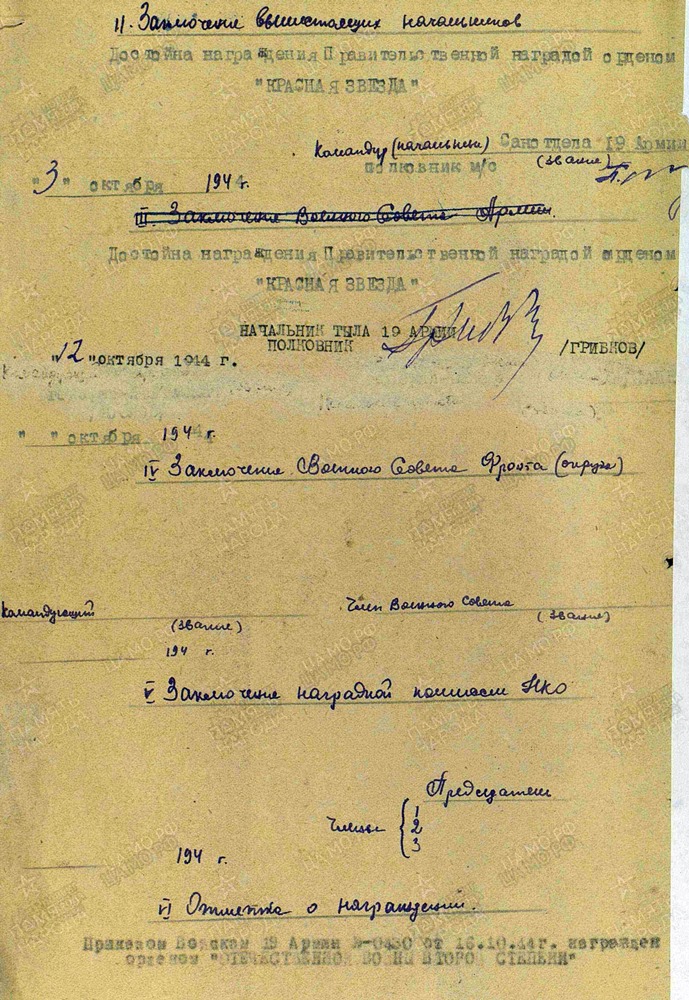 II. Заключение вышестоящих начальников
Достойна награждения Правительственной наградой орденом
"КРАСНАЯ ЗВЕЗДА"
Командир (начальник) Санотдела 19 Армии
полковник м/с (звание)
"3" октября 1944 г.
III. Заключение Военного Совета Армии.
Достойна награждения Правительственной наградой орденом
"КРАСНАЯ ЗВЕЗДА"
НАЧАЛЬНИК ТЫЛА 19 АРМИИ
ПОЛКОВНИК /ГРИБКОВ/
"12" октября 1944 г.
(звание)
" " октября 1944 г.
IV Заключение Военного Совета Фронта (округа)
Командующий Член Военного Совета
(звание) (звание)
194 г.
V Заключение наградной комиссии НКО
Председатель
Члены 1
2
3
194 г.
VI Отметка о награждении.
Приказом Войскам 19 Армии №-0430 от 16.10.44г. награжден
орденом "ОТЕЧЕСТВЕННОЙ ВОЙНЫ ВТОРОЙ СТЕПЕНИ"